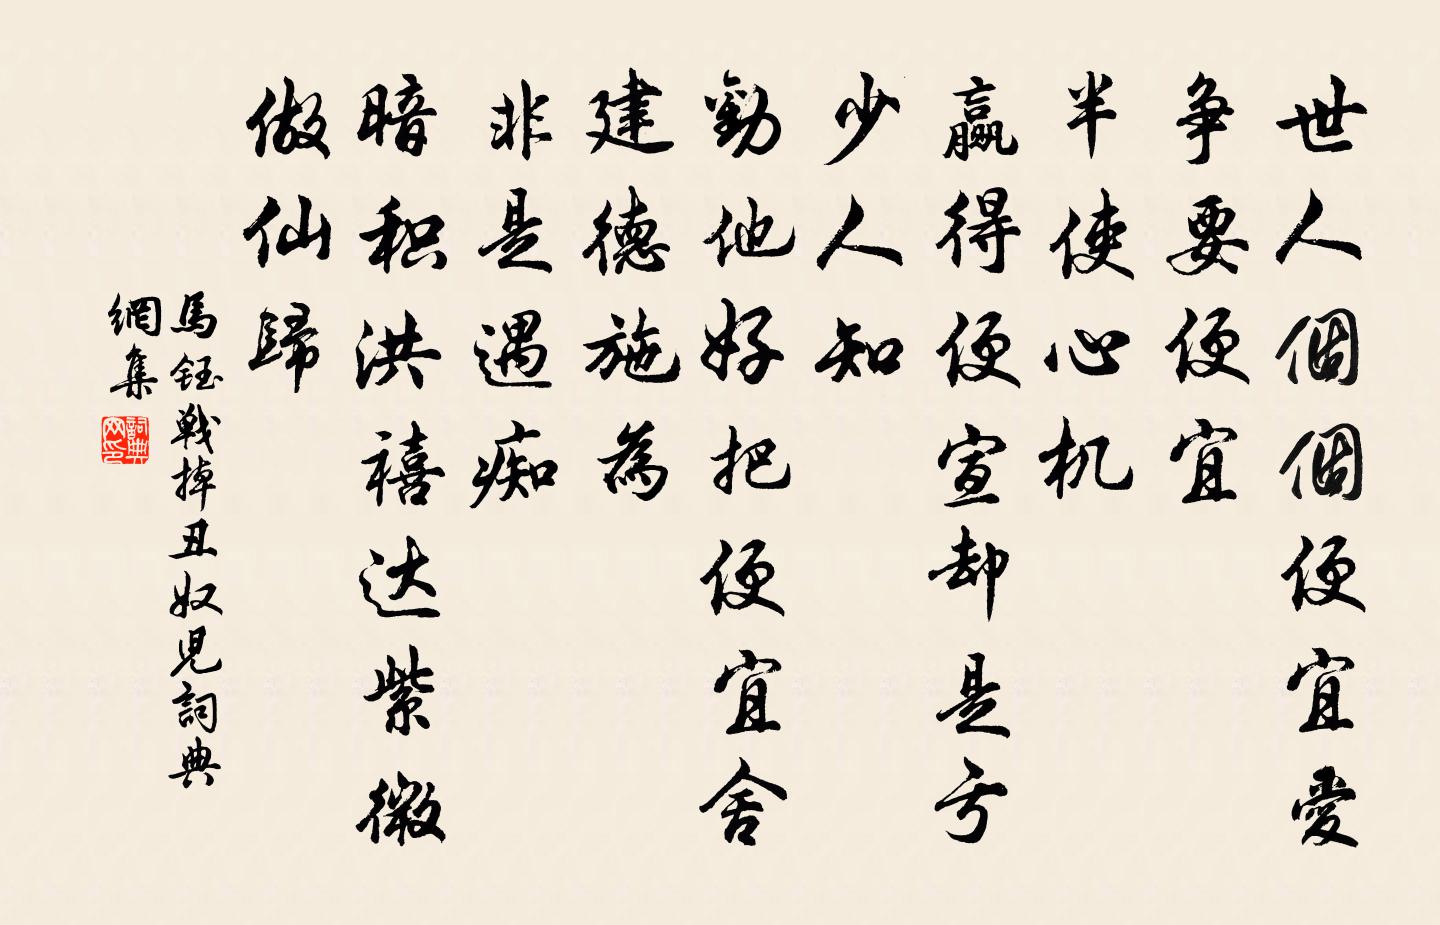 世人個個便宜愛
争要便宜
半使心机
赢得便宣却是亏
少人知
勸他好把便宜舍
建德施為
非是遇痴
暗积洪禧达紫微
做仙歸
馬鈺戦掉丑奴児詞典
網集
詞典
网印